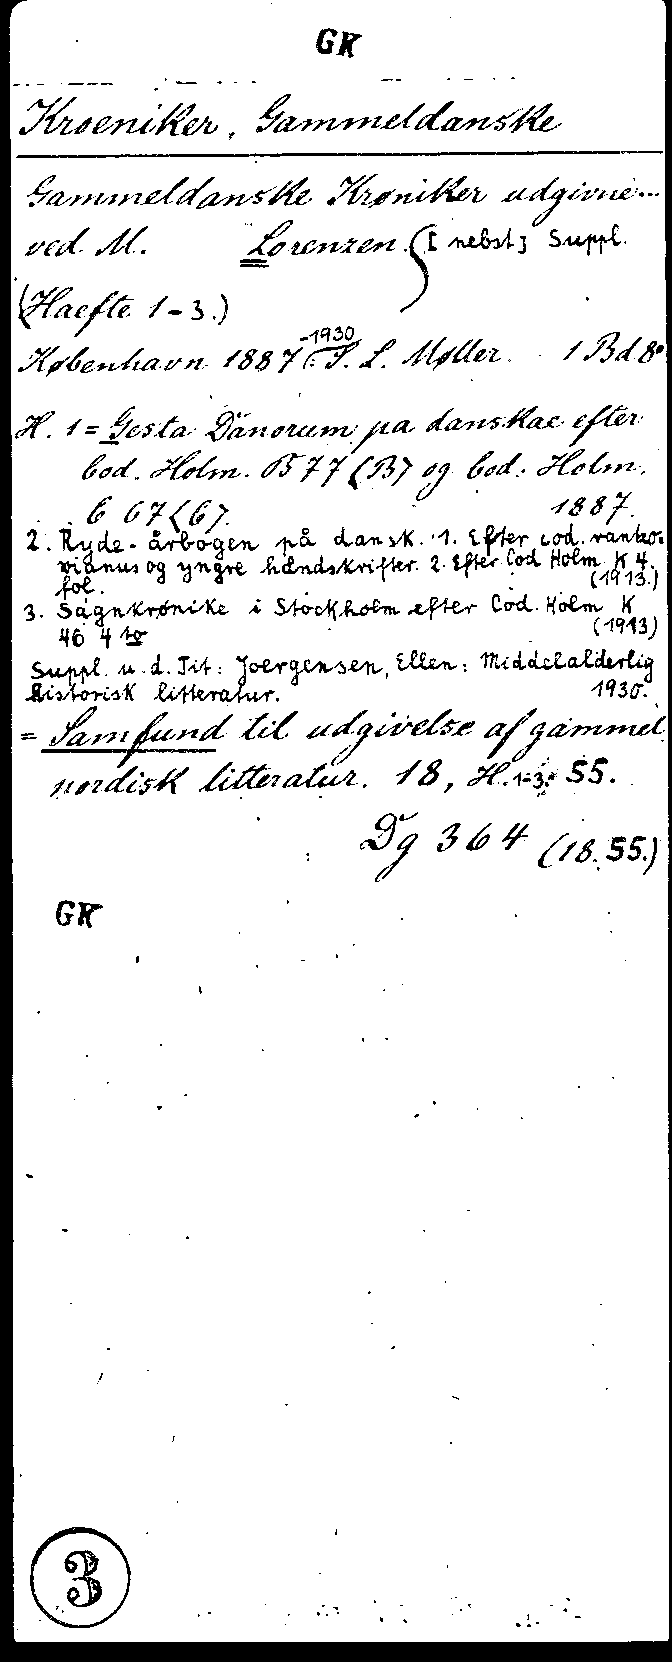 GK
Kroeniker, Gammeldanske
Gammeldanske Krøniker udgivne...
ved M. Lorenzen. [nebst] Suppl.
(Haefte 1-3.)
København 1887-1930: S. L. Møller. 1 Bd 8°
H. 1 = Gesta Danorum pa danskae efter
Cod. Holm. B 77 (B) og Cod. Holm.
C 67 (C). 1887.
2. Ryde-årbogen på dansk. 1. Efter cod. rantzo-
vianus og yngre hændskrifter. 2. Efter Cod Holm K 4.
fol. (1913.)
3. Sagnkrønike i Stockholm efter Cod. Holm K
46 4to (1913)
Suppl. u. d. Tit: Joergensen, Ellen: Middelalderlig
historisk litteratur. 1930.
= Samfund til udgivelse af gammel
nordisk litteratur. 18, H. 1-3. 55.
Dg 364 (18. 55.)
GK
3